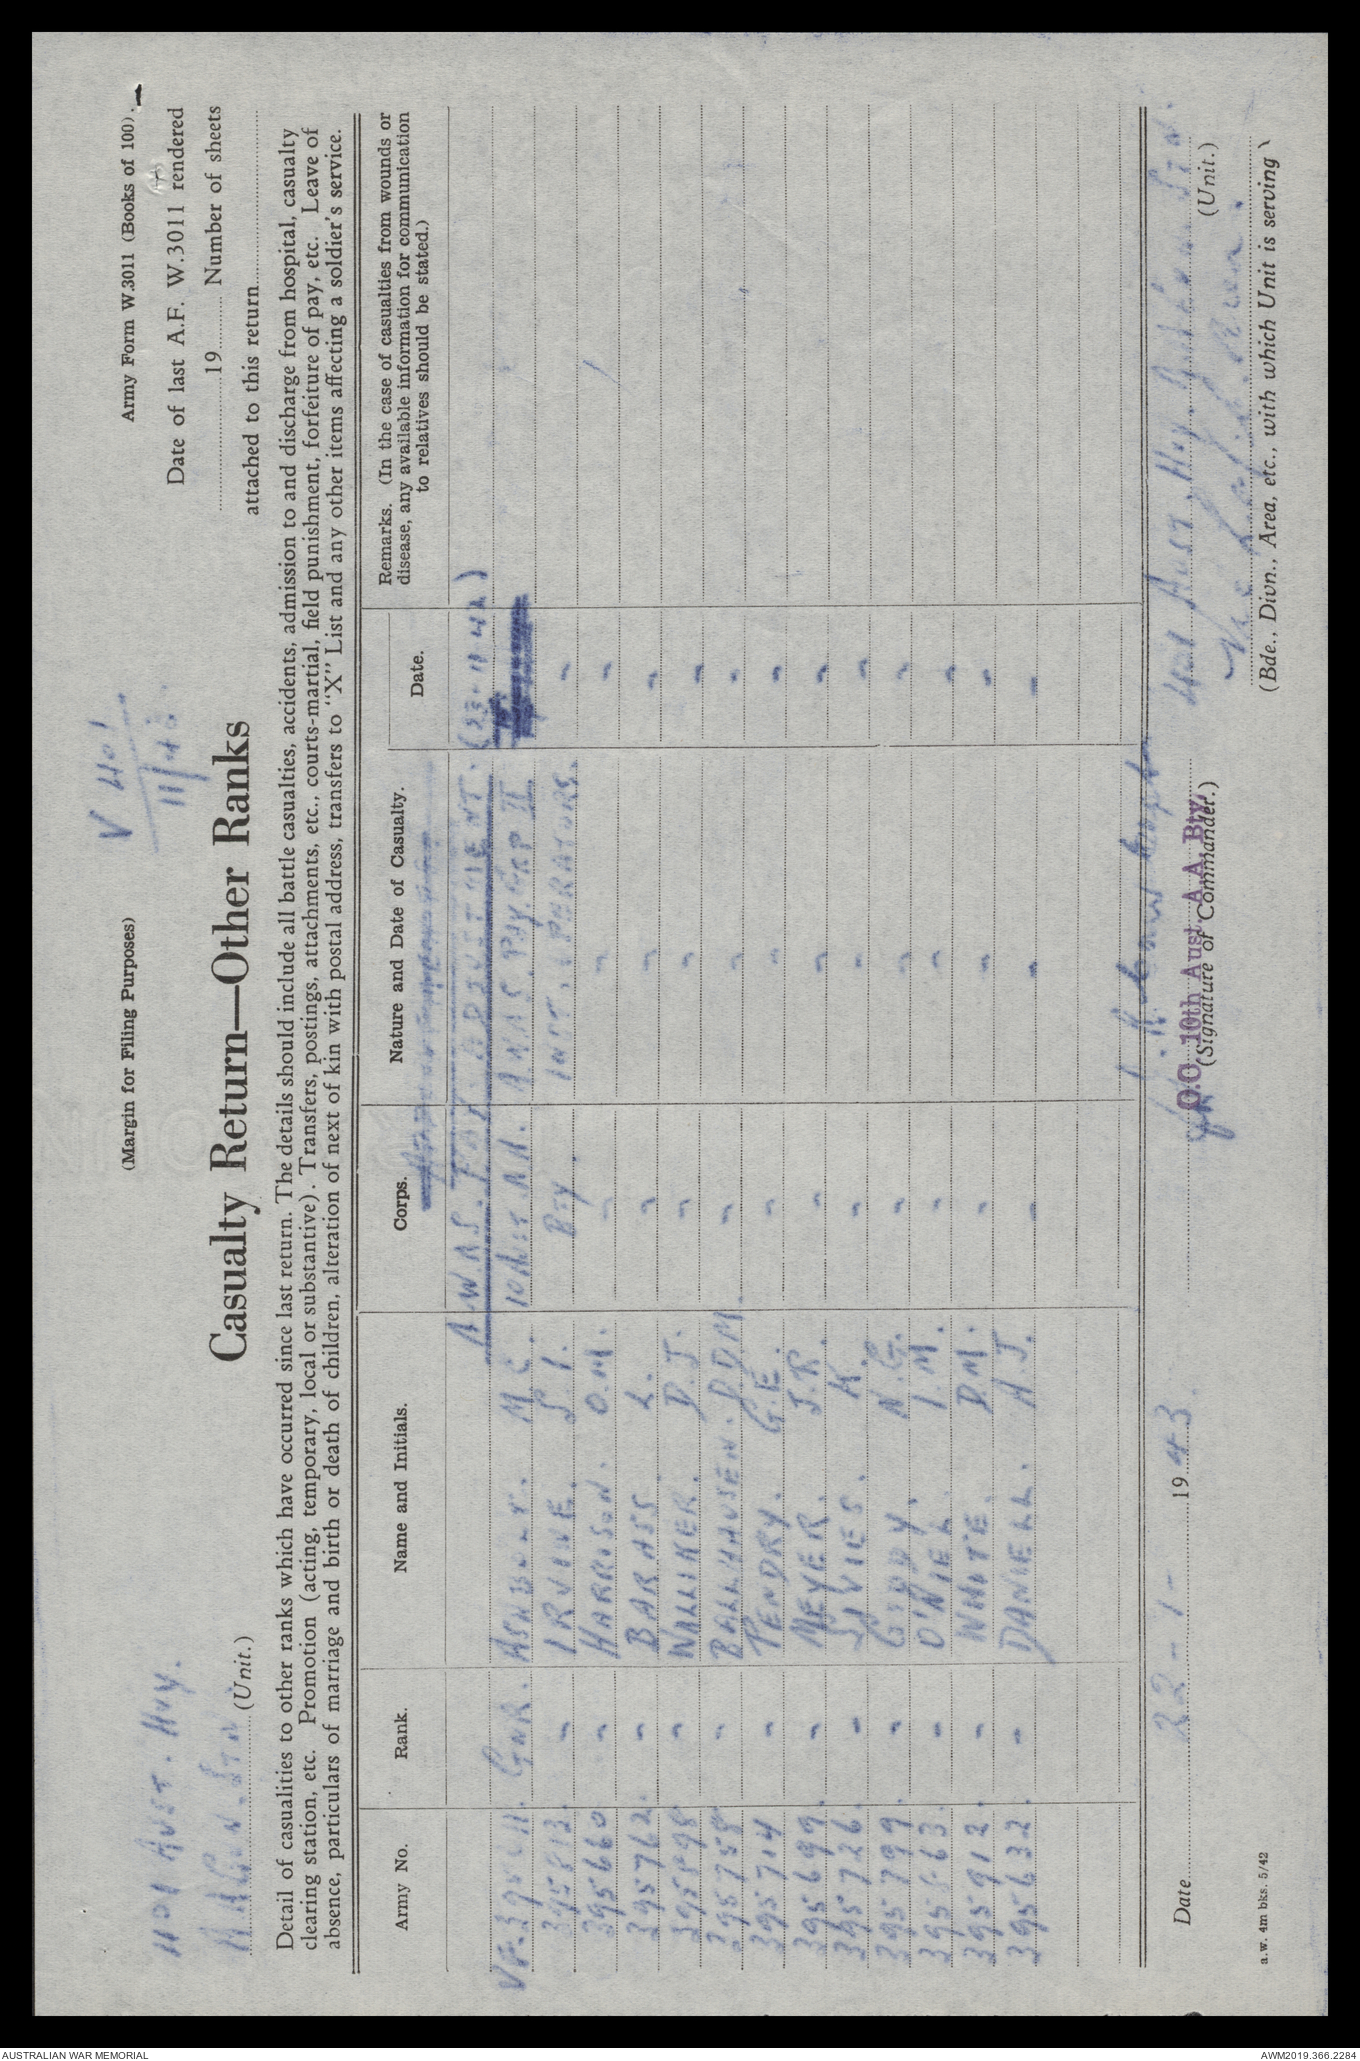 (Margin for Filing Purposes)
Army Form W.3011 (Books of 100).
V 401
11/42
Date of last A.F. W.3011 rendered
19 Number of sheets
attached to this return
401 AUST. Hvy.
(Unit.)
Casualty Return—Other Ranks
Detail of casualities to other ranks which have occurred since last return. The details should include all battle casualties, accidents, admission to and discharge from hospital, casualty
clearing station, etc. Promotion (acting, temporary, local or substantive). Transfers, postings, attachments, etc., courts-martial, field punishment, forfeiture of pay, etc. Leave of
absence, particulars of marriage and birth or death of children, alteration of next of kin with postal address, transfers to "X" List and any other items affecting a soldier's service.
Army No. Rank. Name and Initials. Corps. Nature and Date of Casualty. Date. Remarks. (In the case of casualties from wounds or
disease, any available information for communication
to relatives should be stated.)
A.W.A.S. PAY ADJUSTMENT. (23.11.42)
VF. GNR. M. A.W.A.S. PAY. GRP II
395813. " IRVINE. S. I. Bty. INST. OPERATORS.
395660 " HARRISON. O.M. " " "
395762. " BARASS L. " " "
" WALLIKER. D.J. " " "
395758 " BALLHAUSEN. D.D.M. " " "
395714 " PENDRY. G.E. " " "
395699. " MEYER. J.R. " " "
395726. " K. " " "
395799. " N.G. " " "
" I.M. " " "
395912. " WHITE. D.M. " " "
395632. " DANIELL. A.J. " " "
Date 22-1- 1943
O.C. 10th Aust. A.A. Bty.
(Signature of Commander.)
401 Aust. Hvy.
(Unit.)
Vic
(Bde., Divn., Area, etc., with which Unit is serving
a.w. 4m bks. 5/42
AUSTRALIAN WAR MEMORIAL
AWM2019.366.2284